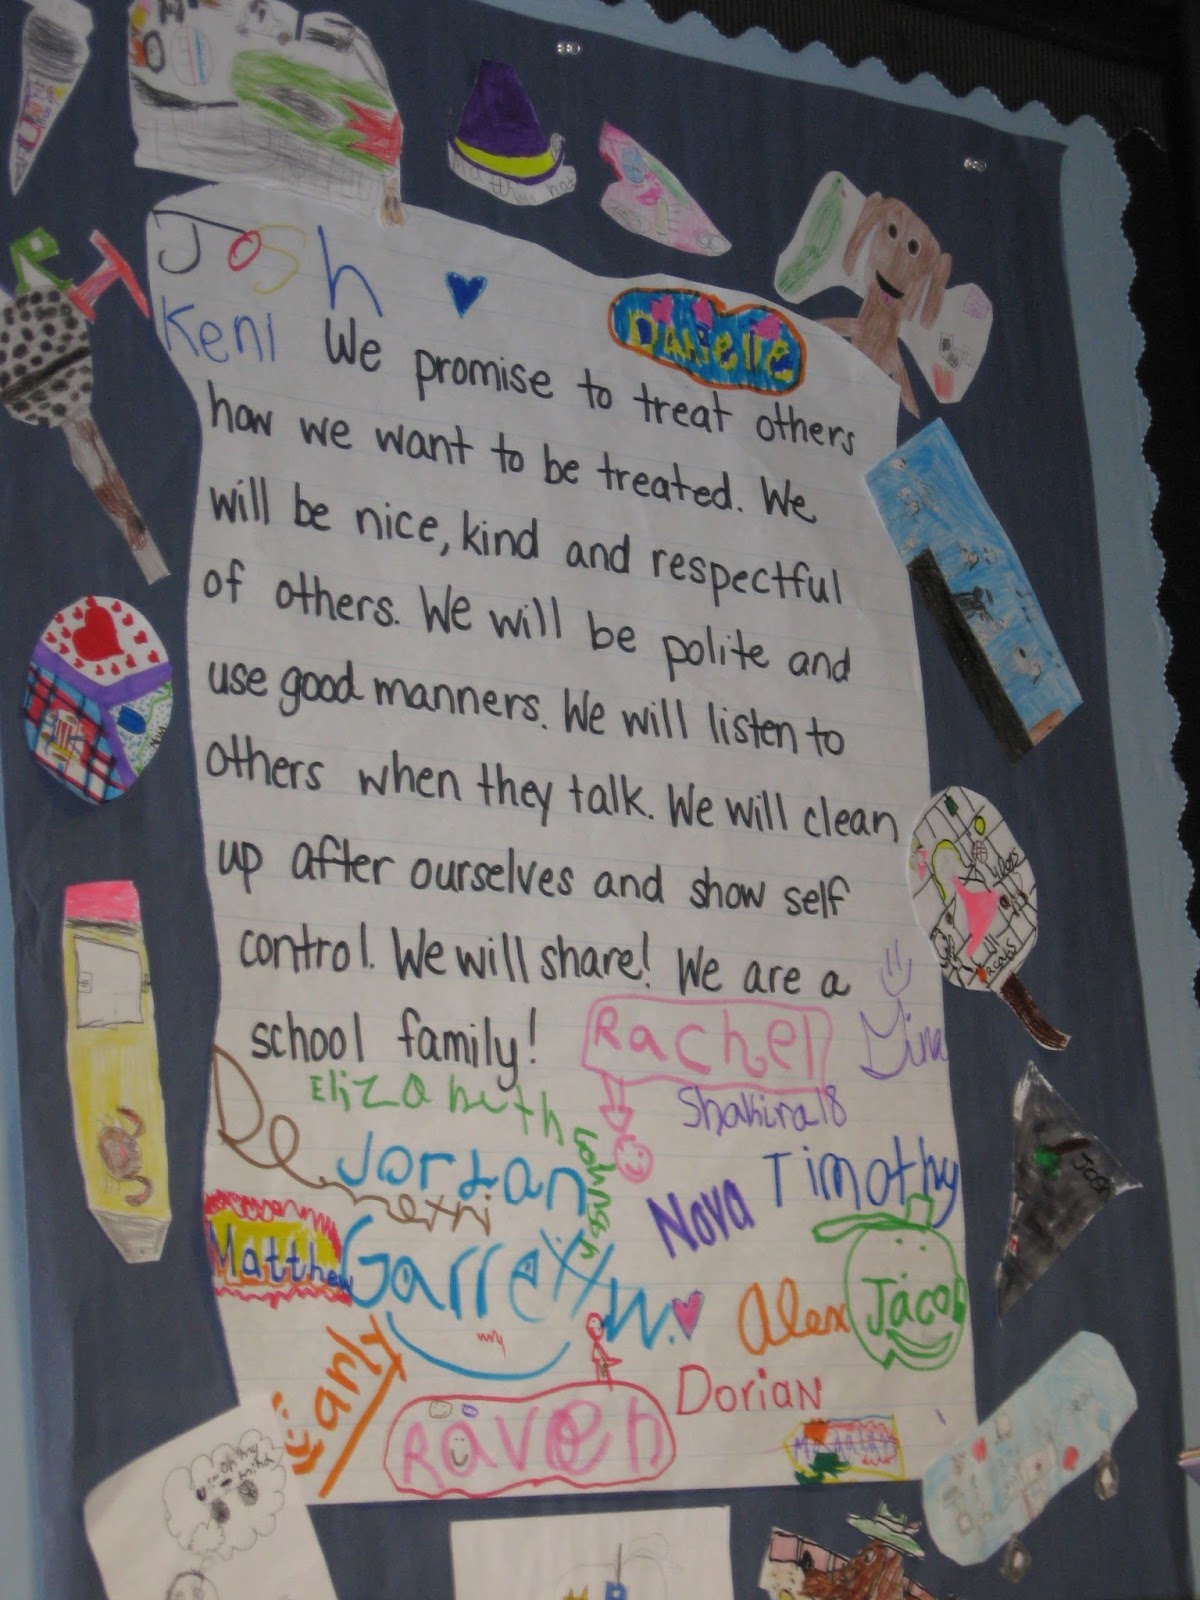 Josh
Keni
Danielle
We promise to treat others
how we want to be treated. We
will be nice, kind and respectful
of others. We will be polite and
use good manners. We will listen to
others when they talk. We will clean
up after ourselves and show self
control. We will share! We are a
school family!
Rachel
Elizabeth
Shakira18
Jordan
Timothy
Nova
Matthew
Garrett W.
Alex
Jacob
Karly
Dorian
Raven
ART
Josh